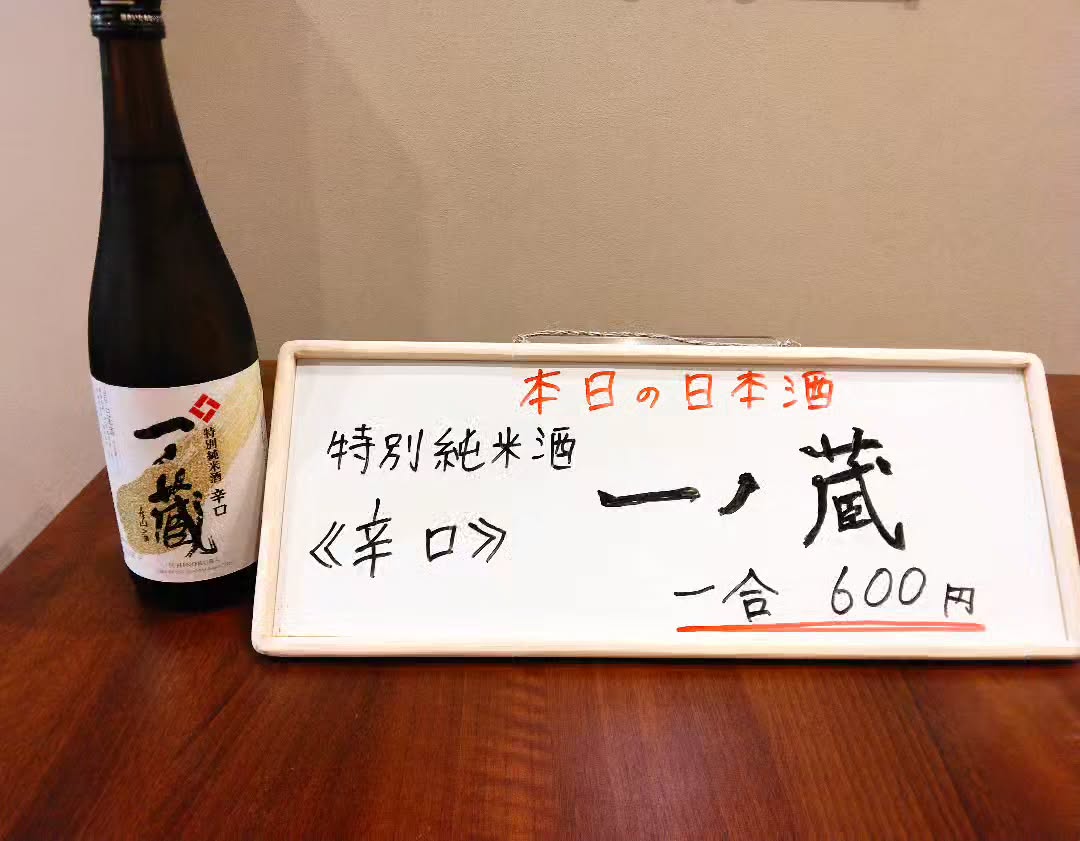 本日の日本酒
特別純米酒
《辛口》
一ノ蔵
一合 600円
一ノ蔵
特別純米酒 辛口